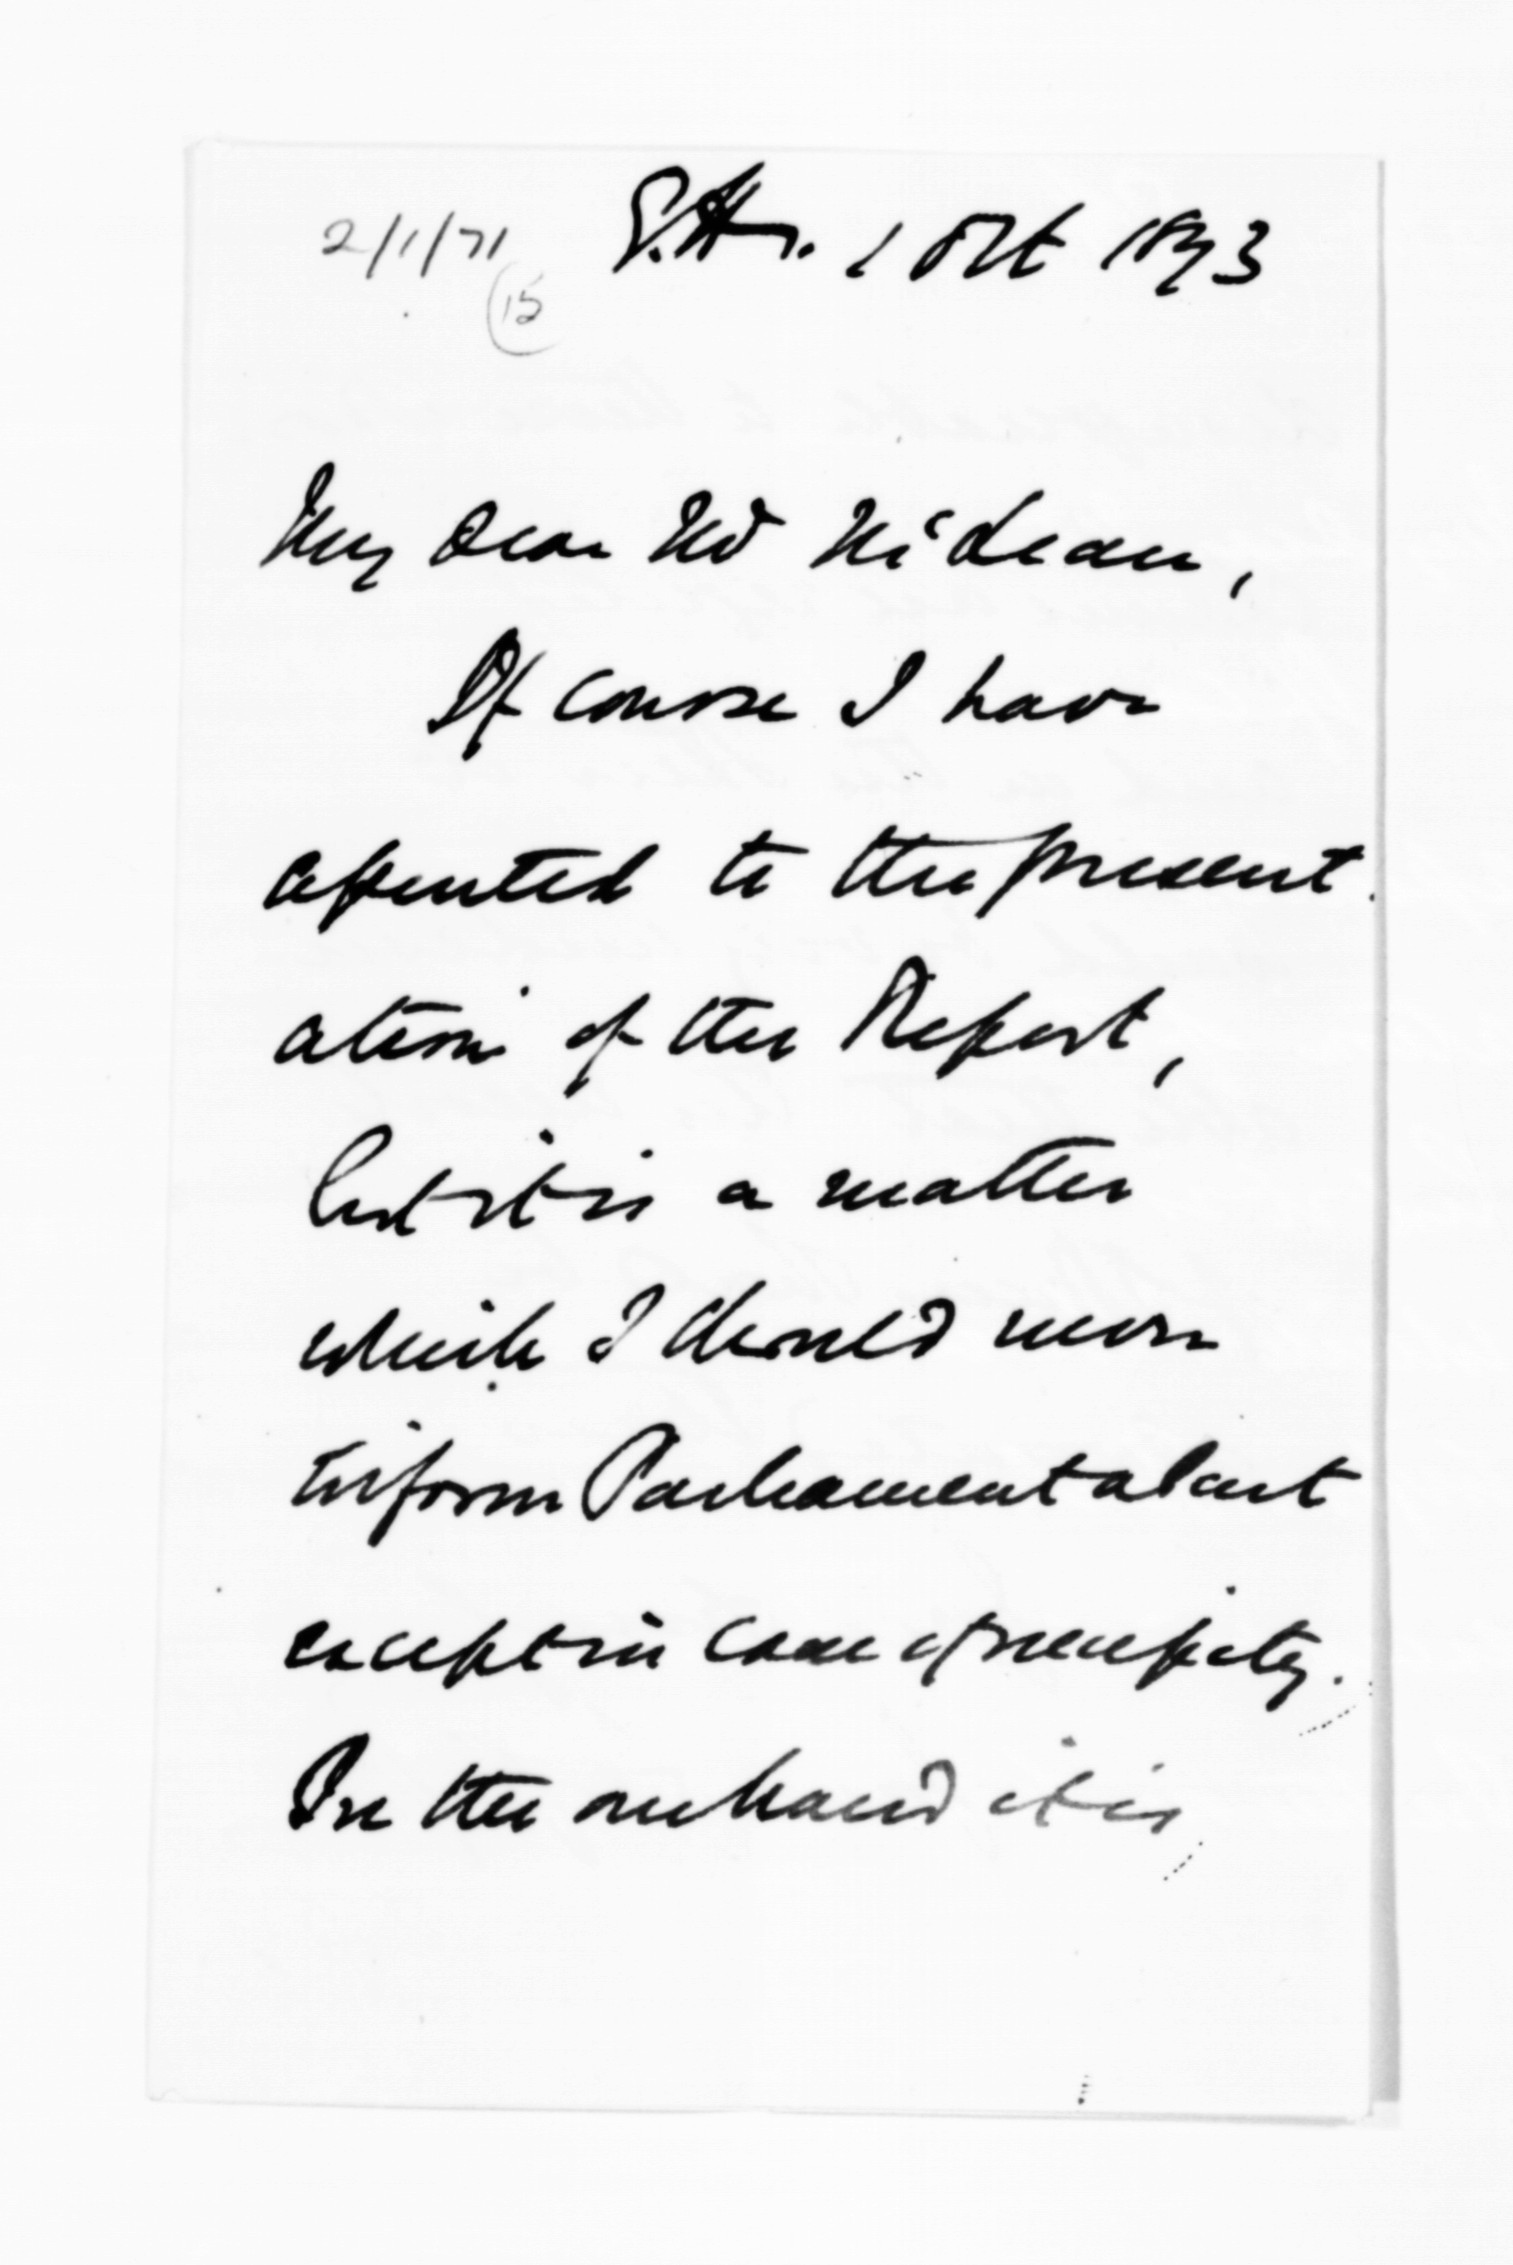 2/1/71
(15
G.H. 1 Oct 1873
My dear Mr McLean,
Of course I have
assented to the present
ation of the Report,
but it is a matter
which I should never
inform Parliament about
except in case of necessity.
On the one hand it is